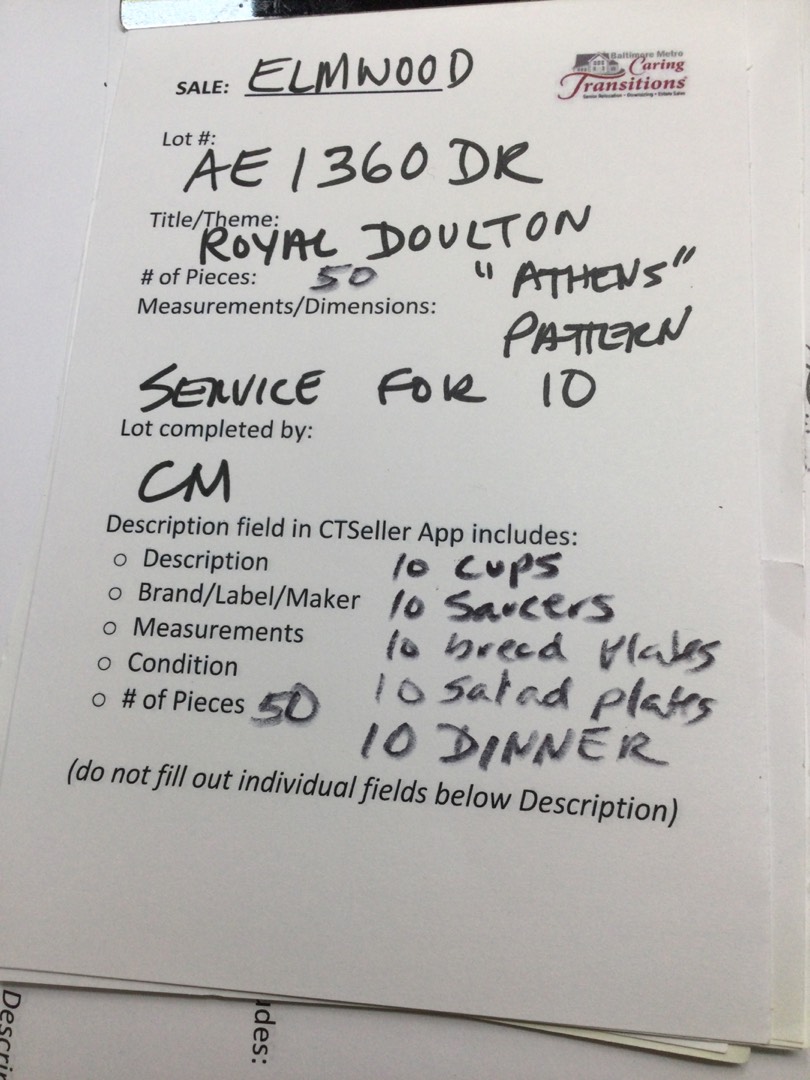 SALE: ELMWOOD
Baltimore Metro
Caring
Transitions
Lot #:
AE1360DR
Title/Theme:
ROYAL DOULTON
# of Pieces: 50 "ATHENS"
Measurements/Dimensions:
PATTERN
SERVICE FOR 10
Lot completed by:
CM
Description field in CTSeller App includes:
○ Description 10 cups
○ Brand/Label/Maker 10 Saucers
○ Measurements 10 bread plates
○ Condition 10 salad plates
○ # of Pieces 50
10 DINNER
(do not fill out individual fields below Description)
des: